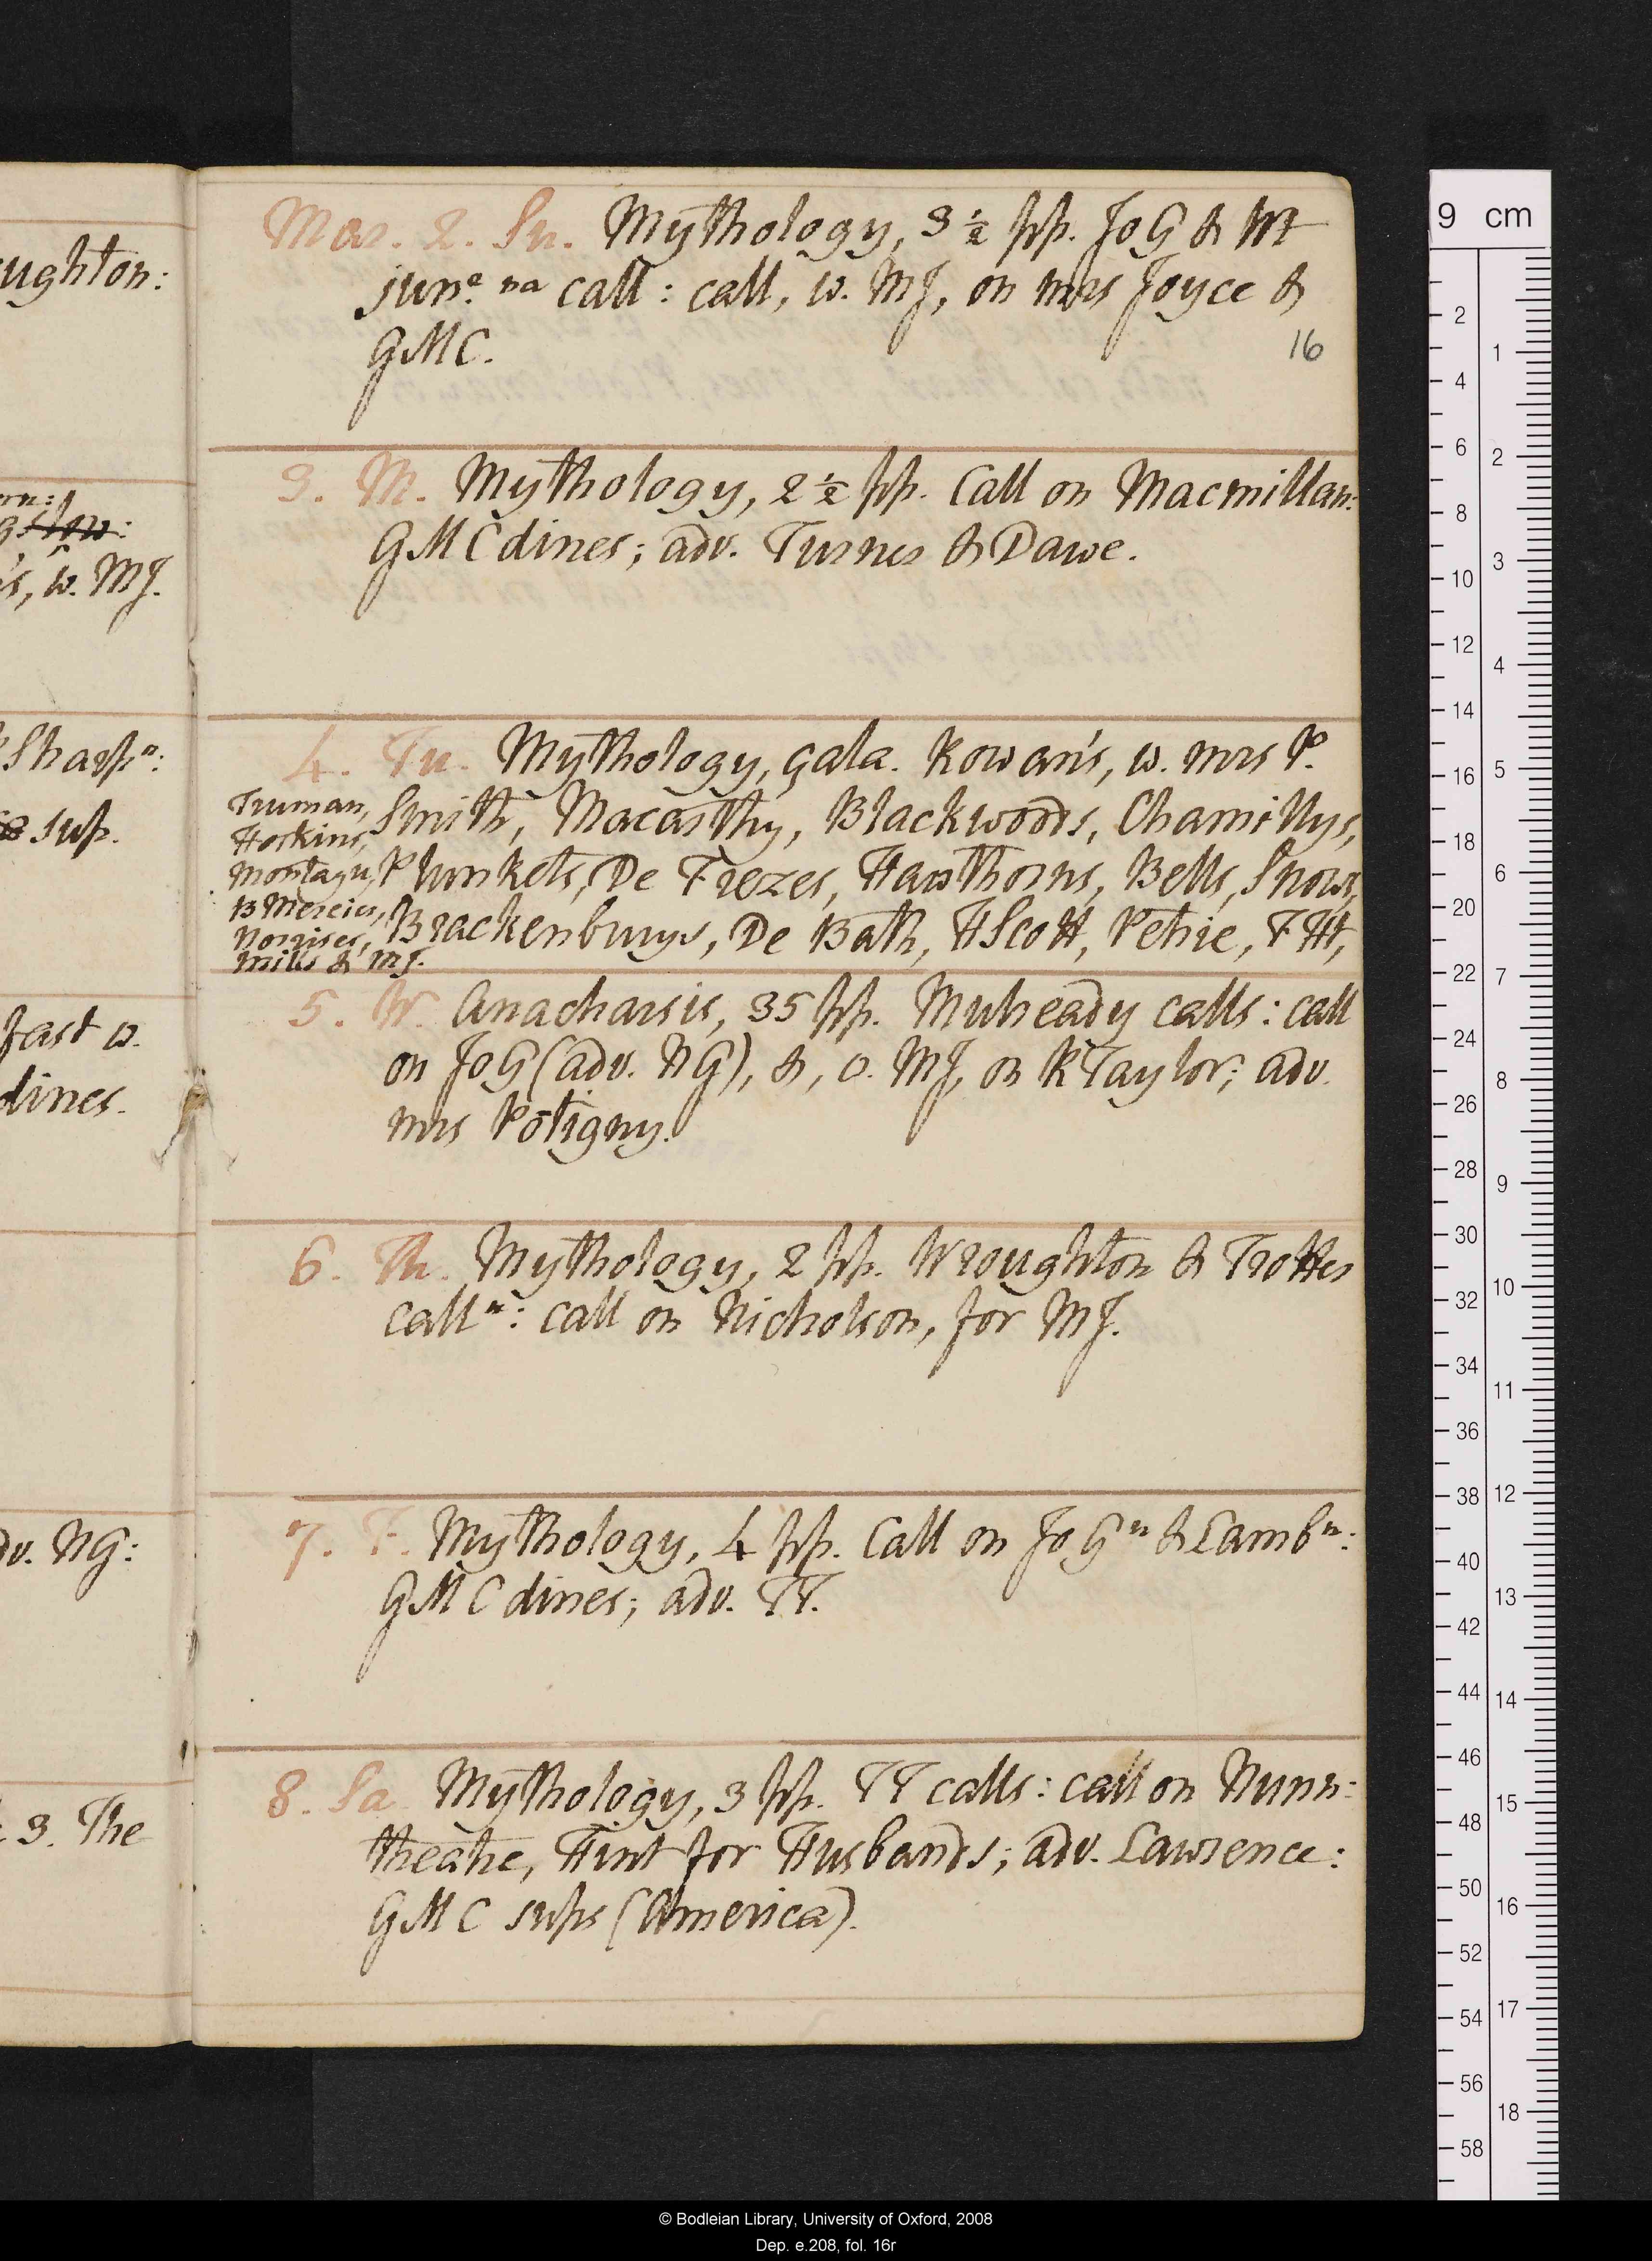 ughton:
s, w. MJ.
Sharpⁿ:
sup.
fast w.
dines.
dv. NG:
3. The
Mar. 2. Su. Mythology, 3 ½ pp. JoG & Wt
junʳ ⁿᵃ call: call, w. MJ, on mrs Joyce &
GMC.
16
3. M. Mythology, 2 ½ pp. Call on Macmillan:
GMC dines; adv. Turner & Dawe.
4. Tu. Mythology, çala. Rowan's, w. mrs P.
Smith, Macarthy, Blackwoods, Chamillys,
Plunkets, De Frezes, Hawthorns, Bells, Snows,
Brackenburys, De Bath, HScott, Petrie, FHt,
Truman,
Hoskins,
Montagu,
B Mercier,
Norrises,
Mills & MJ.
5. W. Anacharsis, 35 pp. Mulready calls: call
on JoG (adv. NG), &, c. MJ, on RTaylor; adv.
mrs Potigny.
6. Th. Mythology, 2 pp. Wroughton & Trotter
callⁿ: call on Nicholson, for MJ.
7. F. Mythology, 4 pp. Call on JoGⁿ & Lambⁿ:
GMC dines; adv. TT.
8. Sa. Mythology, 3 pp. TT calls: call on Nunn:
theatre, Hint for Husbands; adv. Lawrence:
GMC sups (America).
9 cm
2
4
6
8
10
12
14
16
18
20
22
24
26
28
30
32
34
36
38
40
42
44
46
48
50
52
54
56
58
1
2
3
4
5
6
7
8
9
10
11
12
13
14
15
16
17
18
© Bodleian Library, University of Oxford, 2008
Dep. e.208, fol. 16r